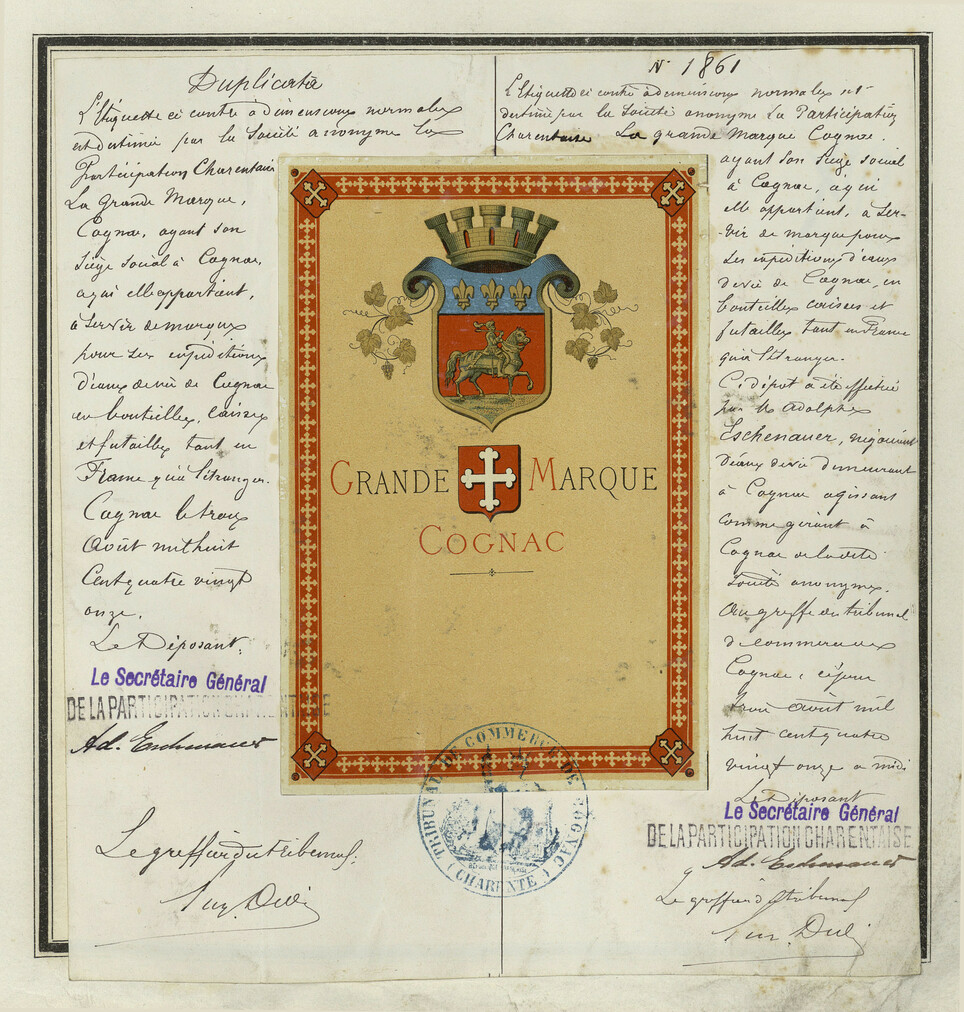 Duplicata
L'Etiquette ci contre à dimensions normales
est destinée par la Société anonyme La
Participation Charentaise
La Grande Marque,
Cognac, ayant son
siège social à Cognac,
à qui elle appartient,
à servir de marque
pour ses expéditions
d'eaux de vie de Cognac
en bouteilles, caisses
et futailles tant en
France qu'à l'étranger.
Cognac le trois
Août mil huit
Cent quatre vingt
onze.
Le Déposant,
Le Secrétaire Général
DE LA PARTICIPATION CHARENTAISE
Ad. Eschenauer
Le greffier du tribunal,
N° 1861
L'Etiquette ci contre à dimensions normales est
destinée par la Société anonyme La Participation
Charentaise La grande Marque Cognac.
ayant son siège social
à Cognac, à qui
elle appartient, à ser-
-vir de marque pour
ses expéditions d'eaux
de vie de Cognac, en
bouteilles caisses et
futailles tant en France
qu'à l'étranger.
Ce dépôt a été effectué
par M Adolphe
Eschenauer, négociant
d'eaux de vie demeurant
à Cognac agissant
comme gérant à
Cognac de la dite
Société anonyme.
Au greffe du tribunal
de commerce de
Cognac, ce jour
trois Août mil
huit cent quatre
vingt onze à midi
Le Déposant
Le Secrétaire Général
DE LA PARTICIPATION CHARENTAISE
Ad. Eschenauer
Le greffier du tribunal
GRANDE MARQUE
COGNAC
TRIBUNAL DE COMMERCE DE COGNAC
(CHARENTE)